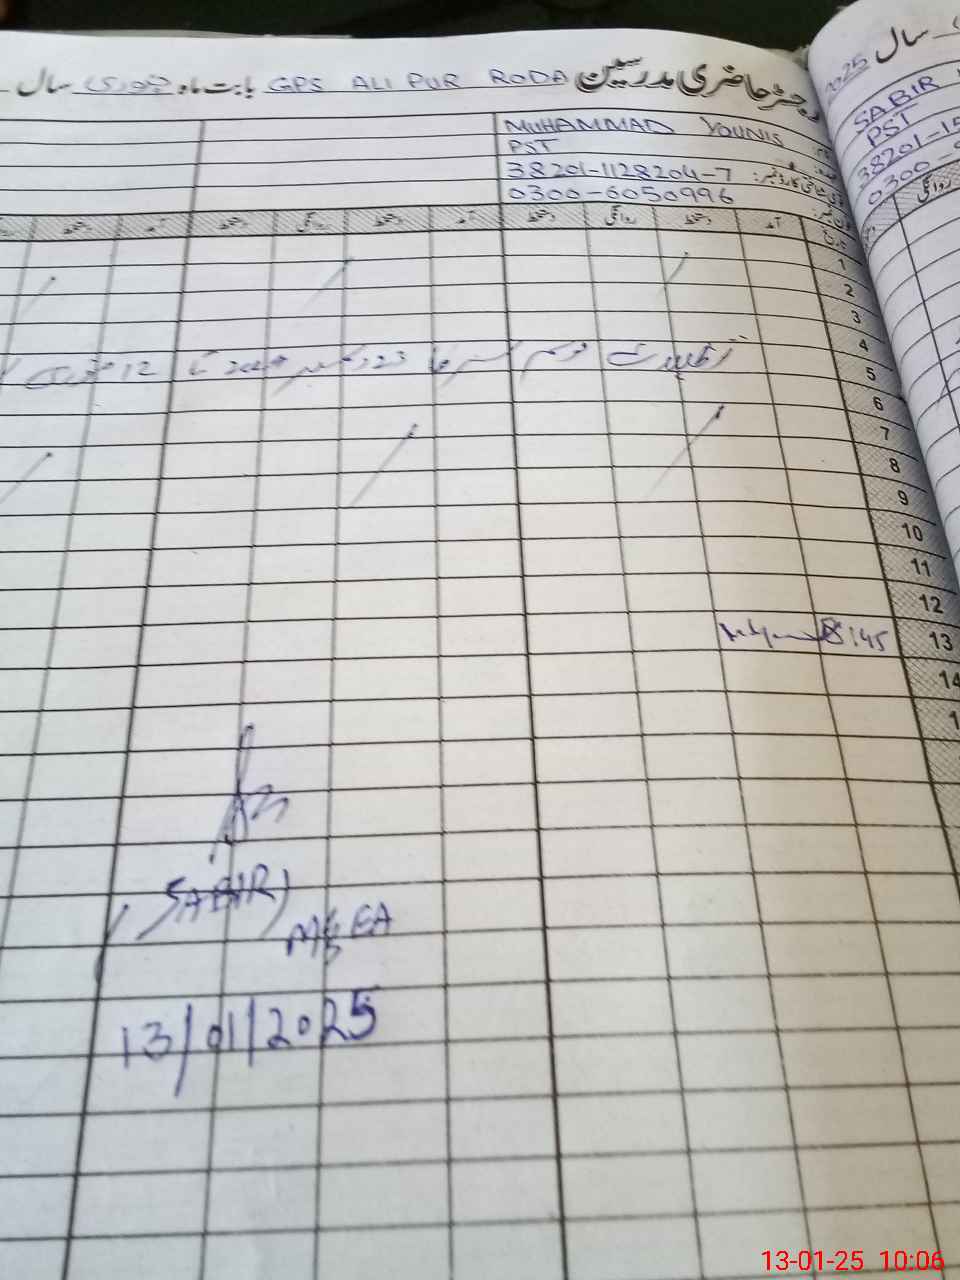 رجسٹر حاضری مدرسین GPS ALI PUR RODA بابت ماہ جنوری سال
2025 سال
MUHAMMAD YOUNIS
PST
38201-1128204-7
0300-6050996
SABIR
PST
38201-15
0300-9
تاریخ آمد دستخط روانگی دستخط آمد دستخط روانگی دستخط آمد دستخط
روانگی
1
2
3
4
تعطیلات موسم سرما 23 دسمبر 2024 تا 12 جنوری
5
6
7
8
9
10
11
12
13 8:45
14
1
(SABIR)
MEA
13/01/2025
13-01-25 10:06